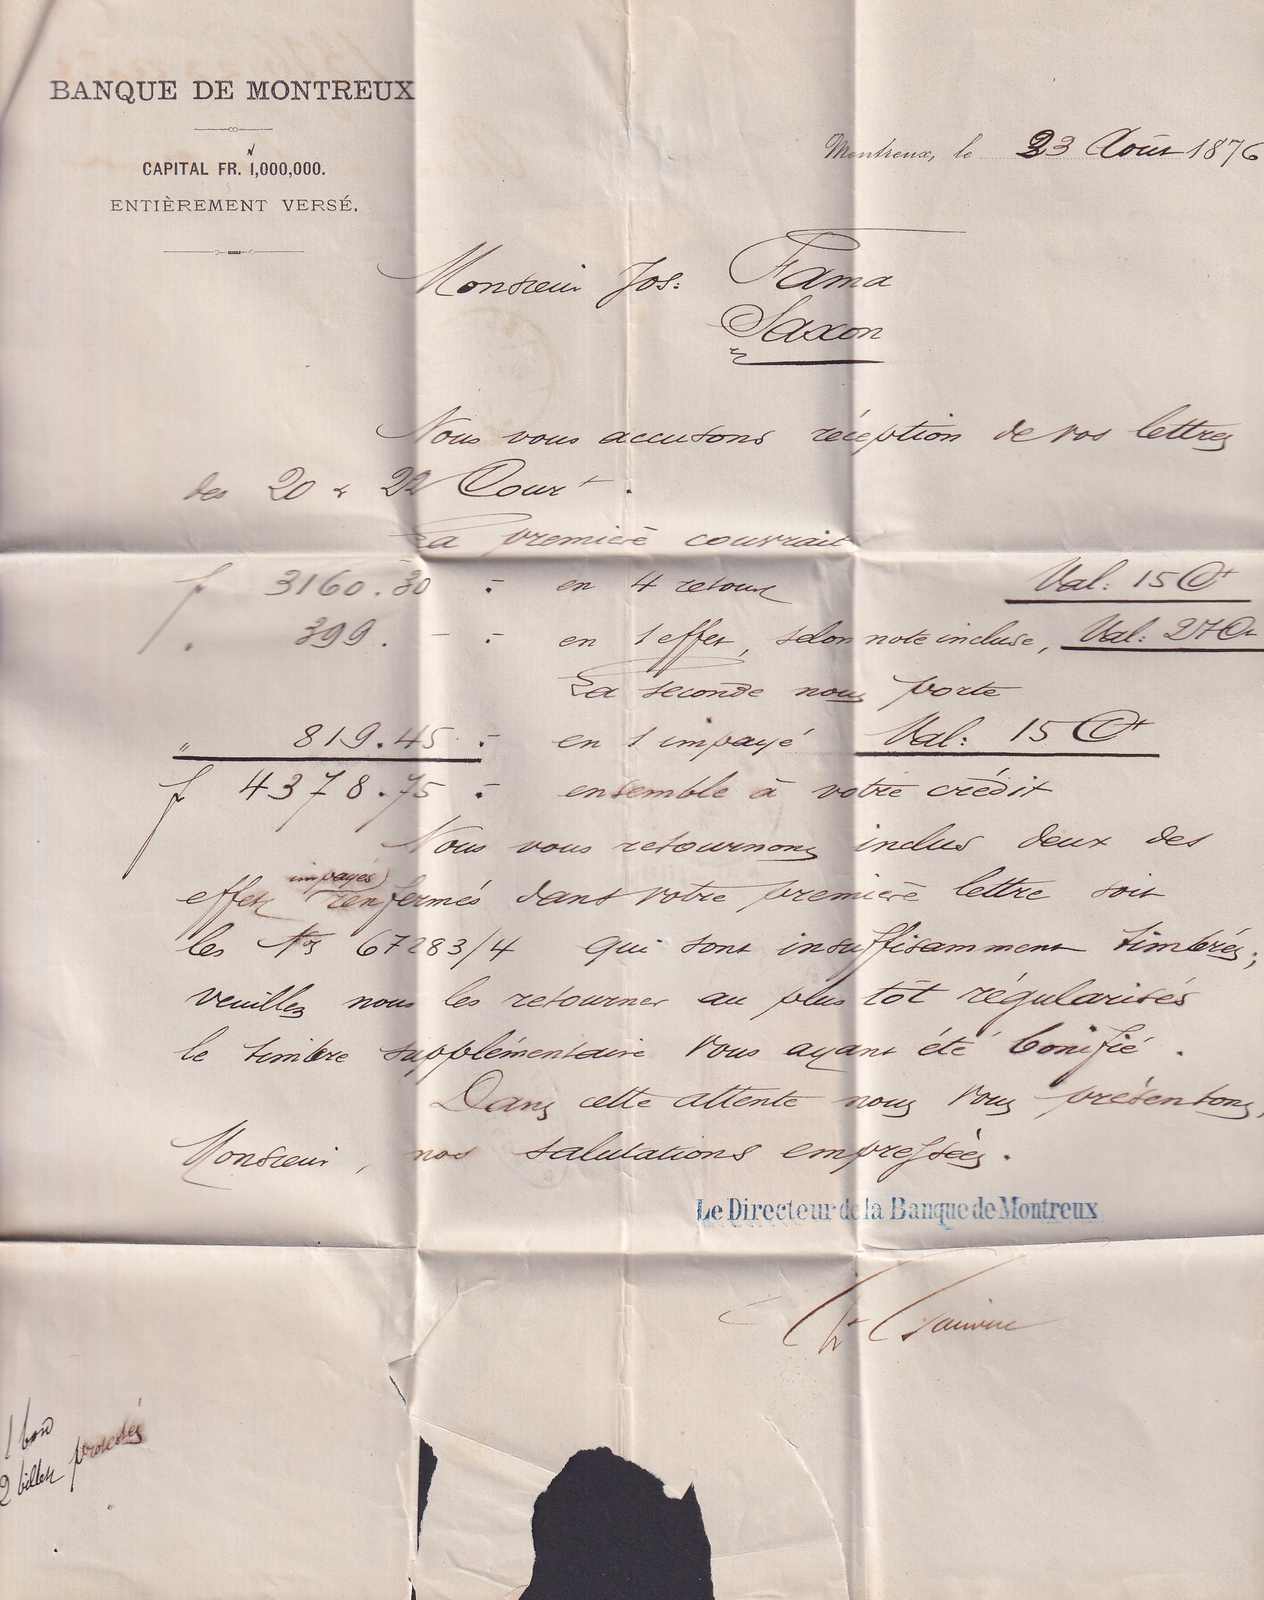 BANQUE DE MONTREUX
CAPITAL FR. 1,000,000.
ENTIÈREMENT VERSÉ.
Montreux, le 23 Août 1876
Monsieur Jos: Fama
Saxon
Nous vous accusons réception de vos lettres
des 20 & 22 Cour.t
La première couvrait
f 3160.30 : en 4 retours Val: 15 Ct
" 399. - : en 1 effet, selon note incluse, Val: 27 Ct
La seconde nous porte
" 819.45 : en 1 impayé Val: 15 Ct
f 4378.75 : ensemble à votre crédit
Nous vous retournons inclus deux des
impayés
effets renfermés dans votre première lettre soit
les Nos 67283/4 qui sont insuffisamment timbrés;
veuillez nous les retourner au plus tôt régularisés
le timbre supplémentaire vous ayant été bonifié.
Dans cette attente nous vous présentons,
Monsieur, nos salutations empressées.
Le Directeur de la Banque de Montreux
1 bon
2 billets protestés